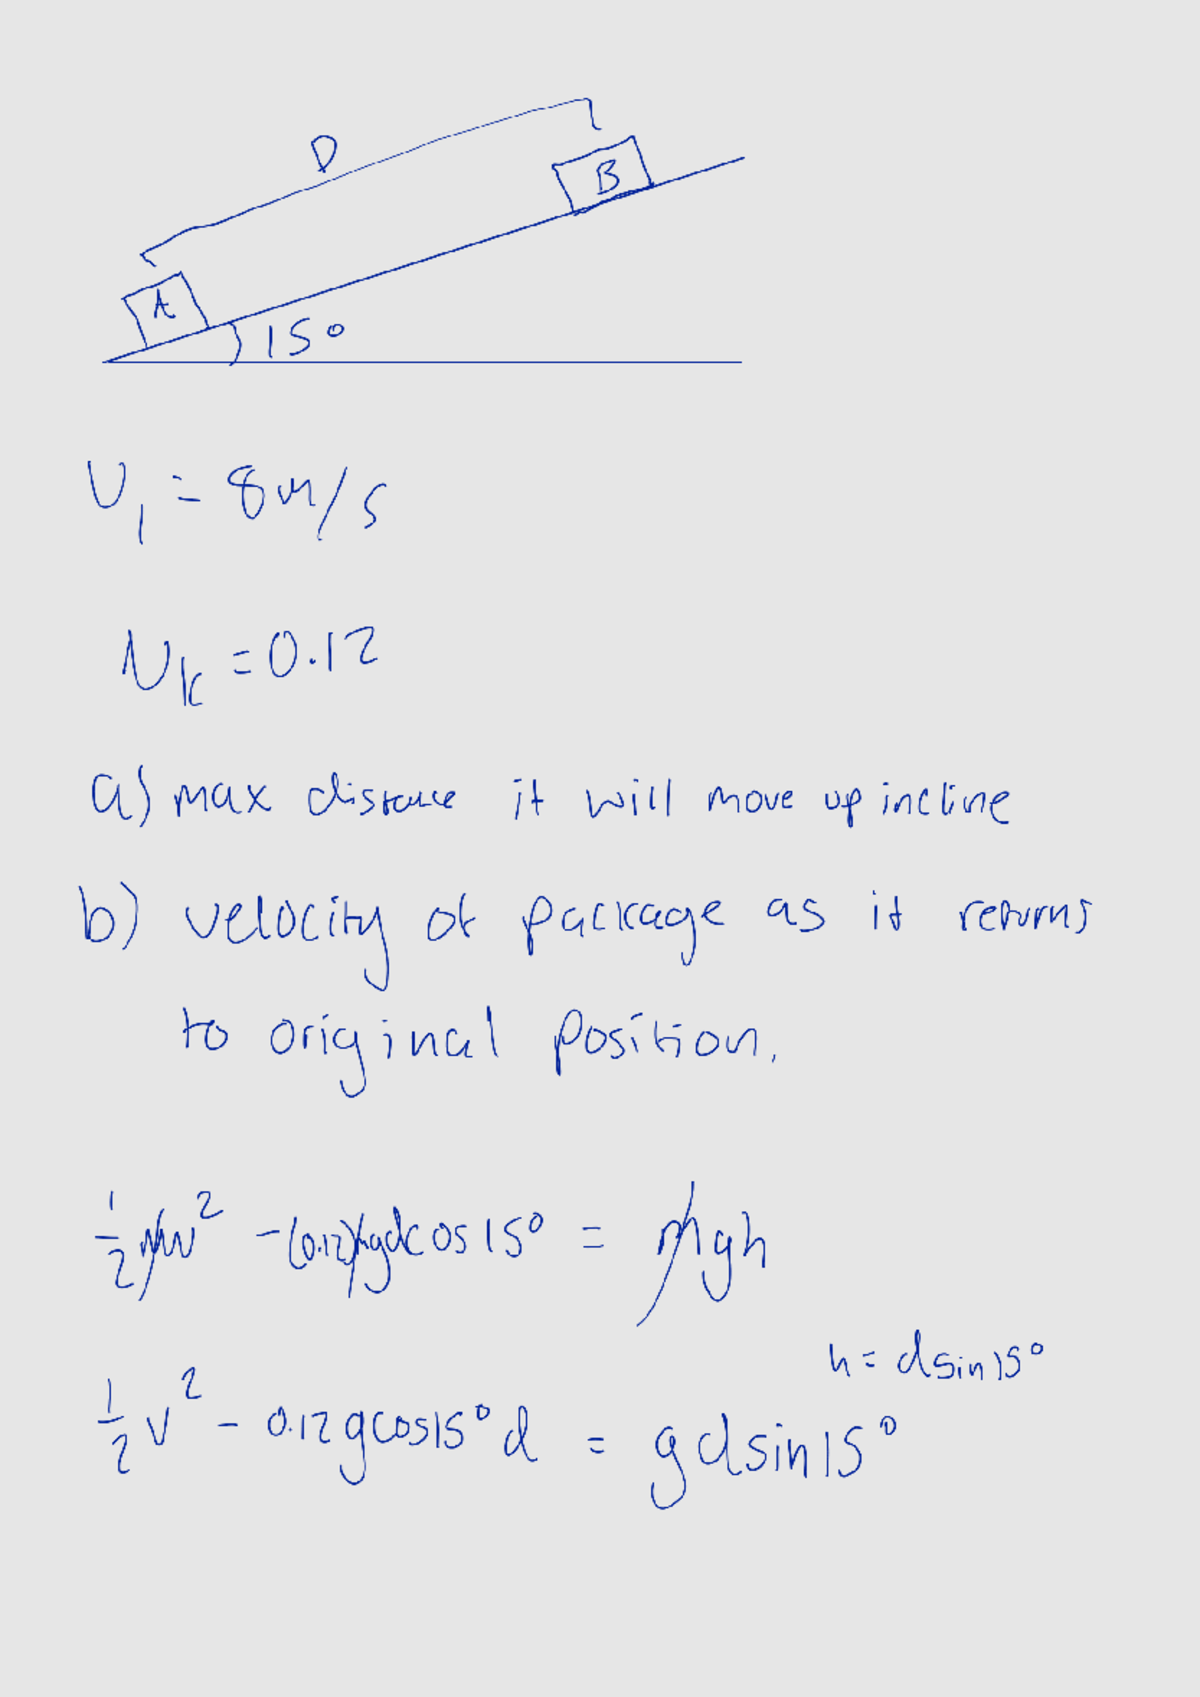 D
B
A
15°
V₁ = 8m/s
Nk = 0.12
a) max distance it will move up incline
b) velocity of package as it returns
to original position.
½mv² - (0.12)mgdcos15° = mgh
h = dsin15°
½v² - 0.12gcos15°d = gdsin15°